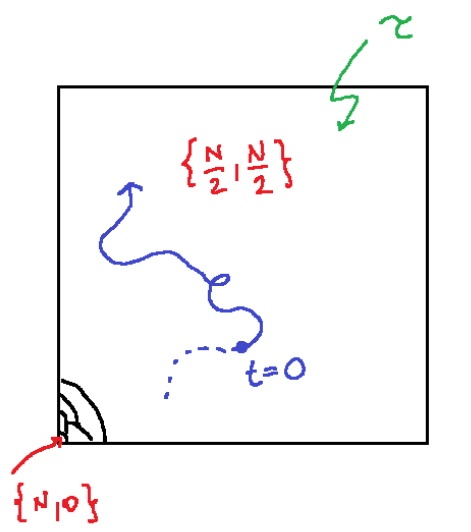 τ
{N/2, N/2}
t=0
{N,0}